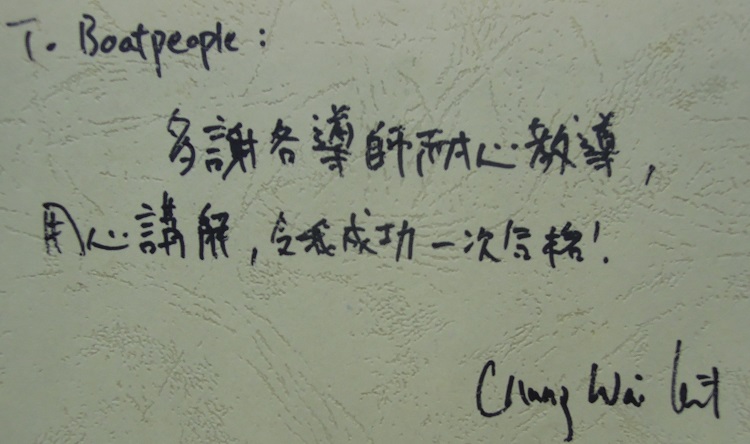 To Boatpeople:
多謝各導師耐心教導,
用心講解,令我成功一次合格!
Chung Wai